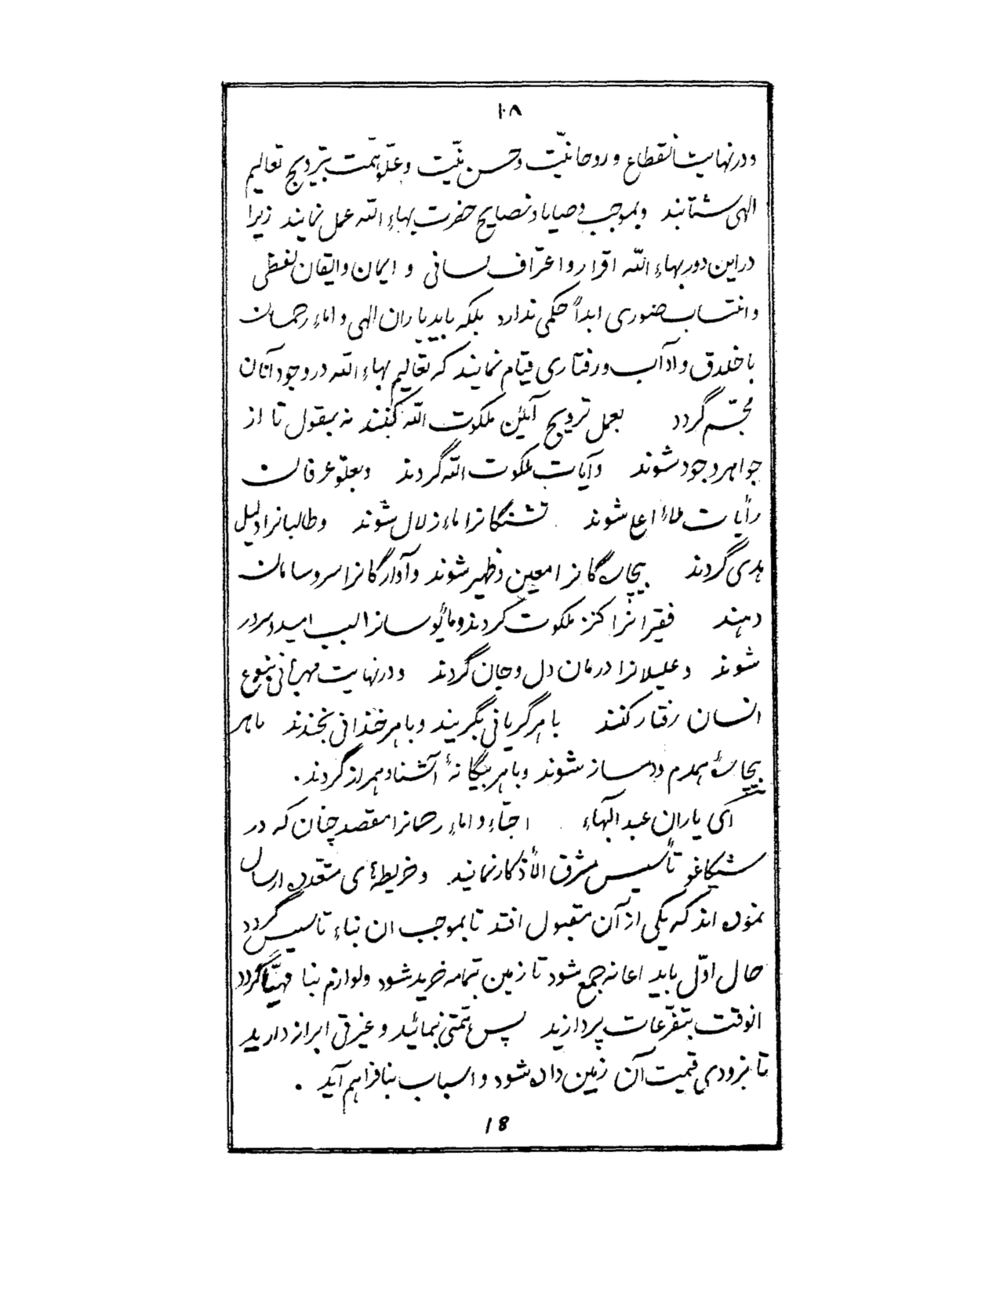 ۱۰۸
و در نهایت انقطاع و روحانیّت و حسن نیّت و علوّ همّت بترویج تعالیم
الهی شتابند و بموجب وصایا و نصایح حضرت بهاء اللّه عمل نمایند زیرا
در این دور بهاء اللّه اقرار و اعتراف لسانی و ایمان و ایقان لفظی
و انتساب صوری ابداً حکمی ندارد بلکه باید یاران الهی و اماء رحمان
باخلاق و آداب و رفتاری قیام نمایند که تعالیم بهاء اللّه در وجود آنان
مجسّم گردد بعمل ترویج آئین ملکوت اللّه کنند نه بمقول تا از
جواهر وجود شوند و آیات ملکوت اللّه گردند و بعلوّ عرفان
رأیات ملاٴ اعلی شوند تشنگانرا ماء زلال شوند و طالبانرا دلیل
هدی گردند بیچاره‌گانرا معین و ظهیر شوند و آوارگانرا سر و سامان
دهند فقیرانرا کنز ملکوت گردند و مأیوسانرا سبب امید و سرور
شوند و علیلانرا درمان دل و جان گردند و در نهایت مهربانی بنوع
انسان رفتار کنند با هر گریانی بگریند و با هر خندانی بخندند با هر
بیچارهٴ همدم و دمساز شوند و با هر بیگانهٴ آشنا و همراز گردند .
ای یاران عبد البهاء احبّاء و اماء رحمانرا مقصد چنان که در
شیکاغو تأسیس مشرق الأذکار نمایند و خریطهٴ‌های متعدده ارسال
نموده اند که یکی از آن مقبول افتد تا بموجب ان بناء تأسیس گردد
حال اوّل باید اعانه جمع شود تا زمین بتمامه خرید شود و لوازم بنا مهیّا گردد
انوقت بتفرّعات پردازید پس همّتی بنمائید و غیرتی ابراز دارید
تا بزودی قیمت آن زمین داده شود و اسباب بنا فراهم آید .
18